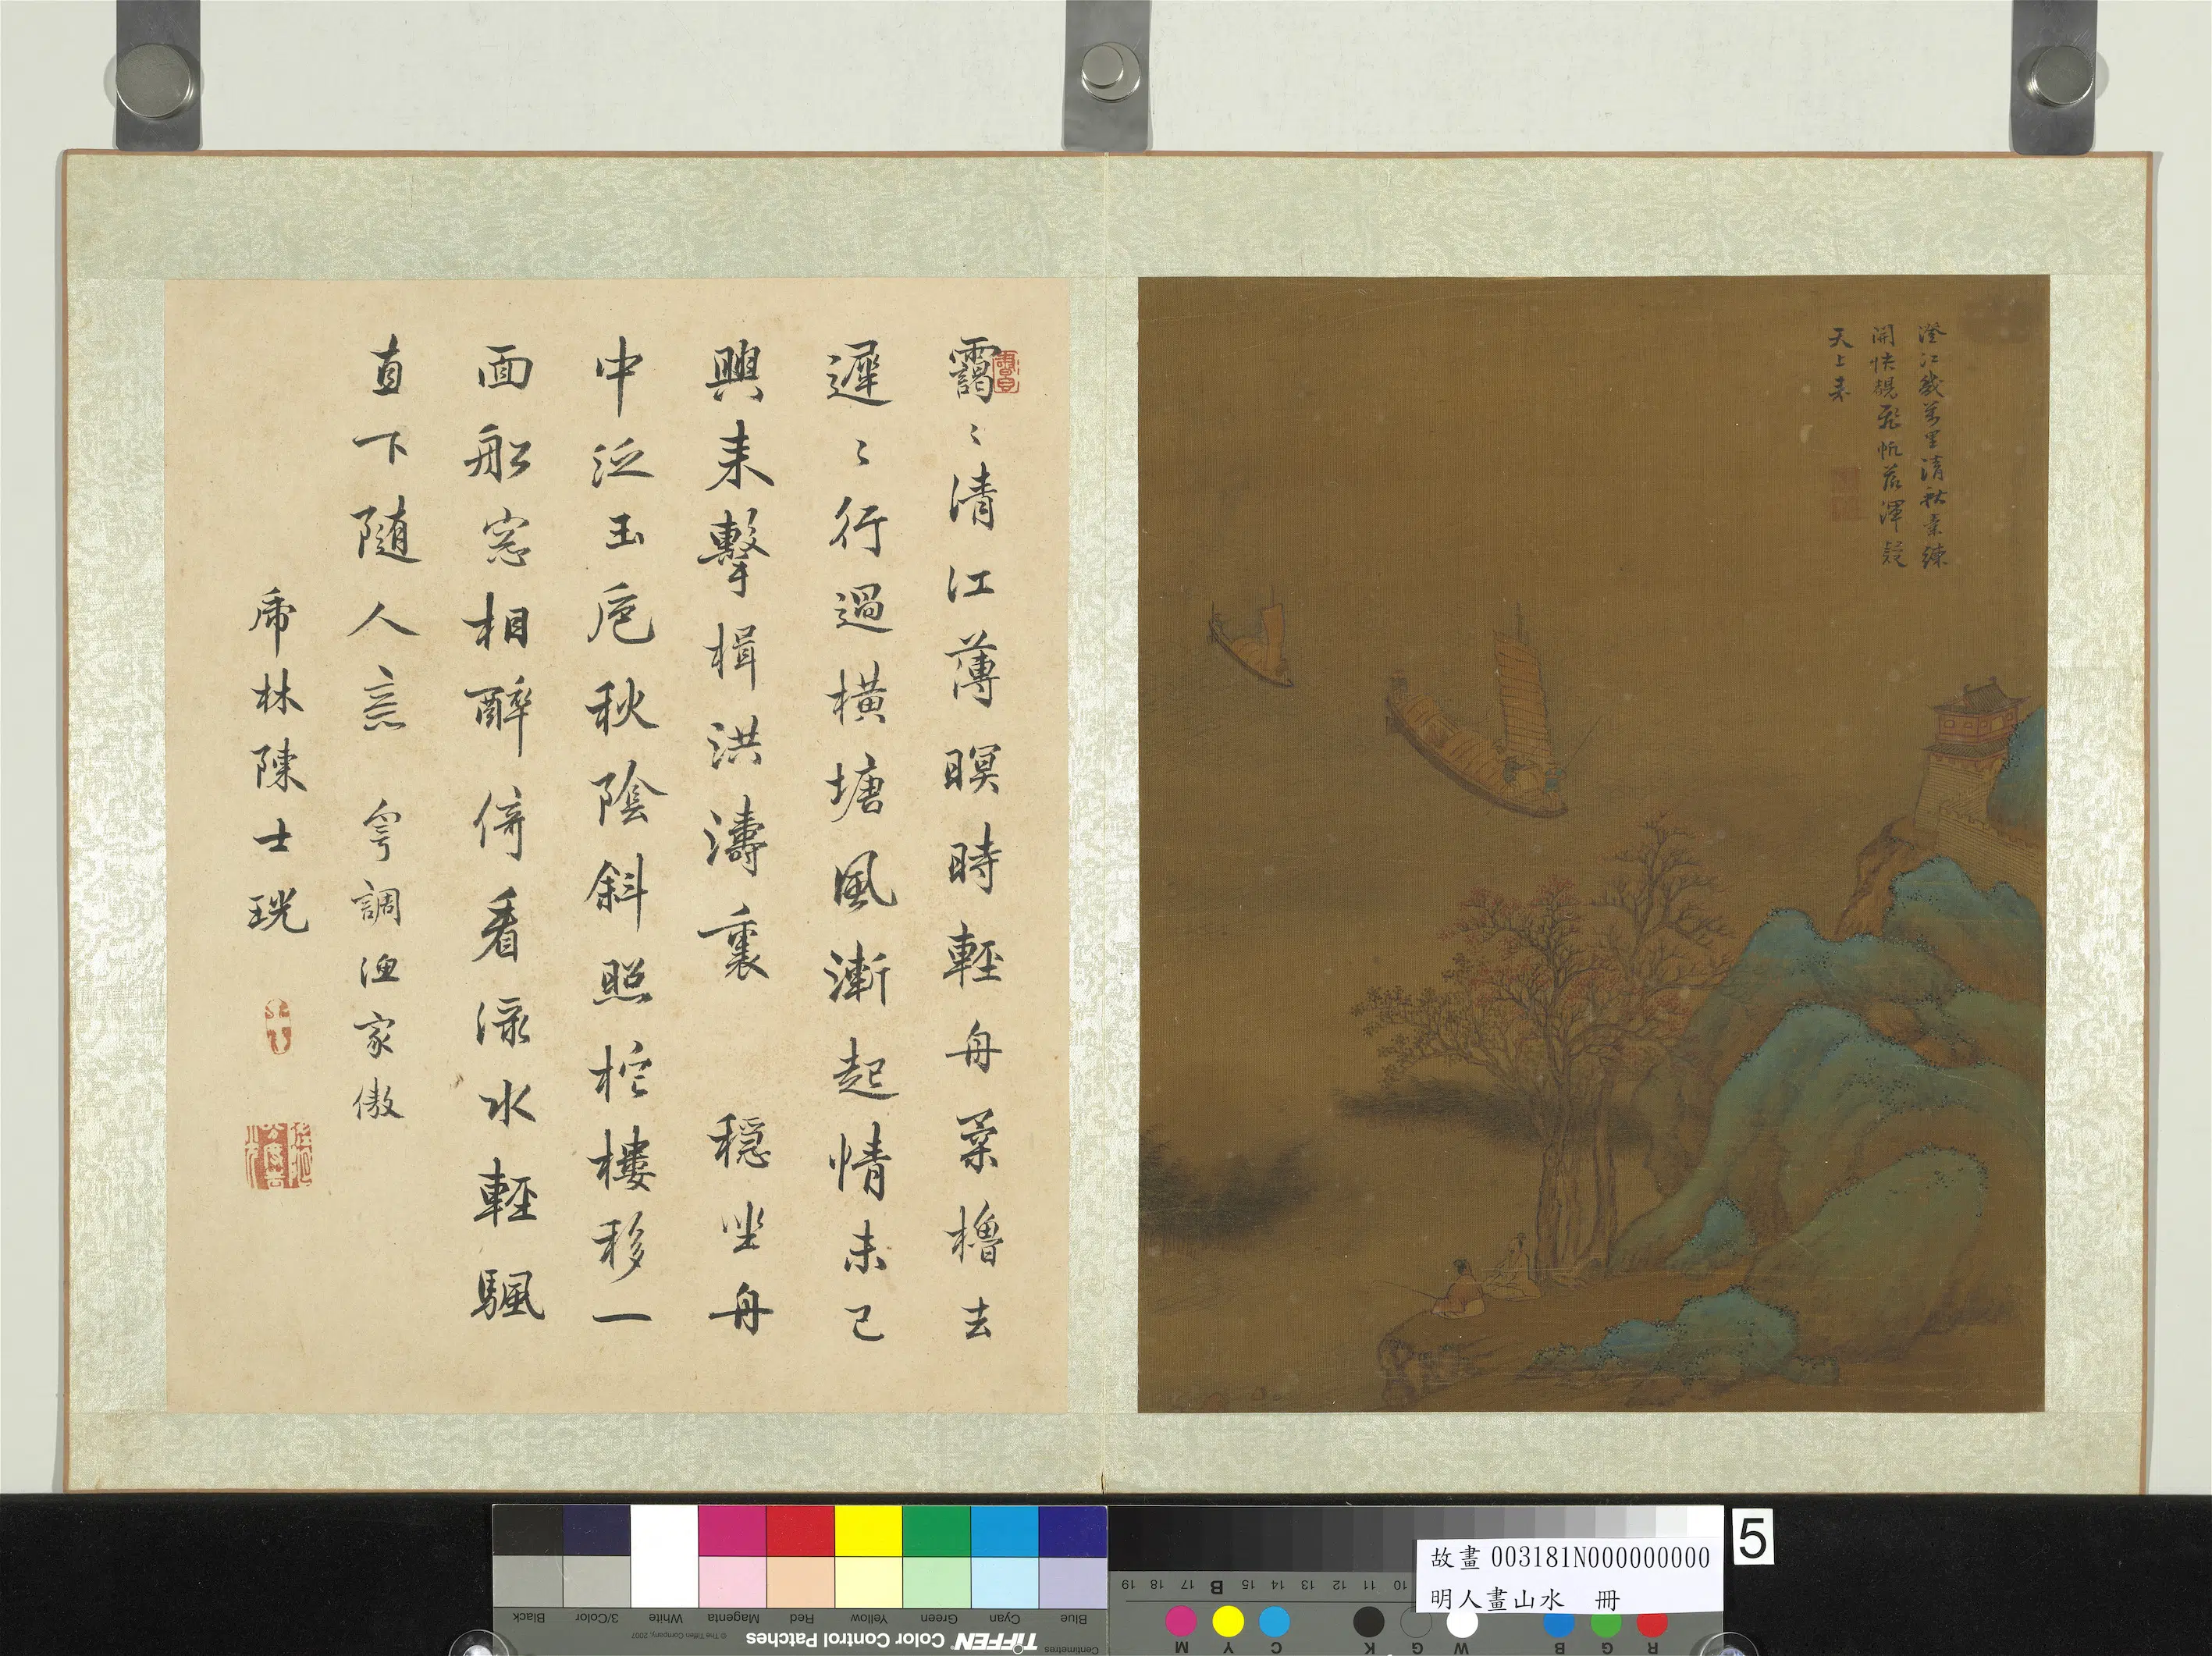 澄江幾萬里清秋素練
開快覩飛帆落渾疑
天上来
靄〻清江薄暝時輕舟柔櫓去
遲〻行過橫塘風漸起情未已
興来擊楫洪濤裏 穩坐舟
中泛玉巵秋陰斜照柁樓移一
面船窓相醉倚看淥水輕颿
直下隨人意 寄調漁家傲
乕林陳士珖
故畫 003181N000000000
明人畫山水 冊
5
Centimetres
TIFFEN Color Control Patches
© The Tiffen Company, 2007
Blue Cyan Green Yellow Red Magenta White 3/Color Black
10 11 12 13 14 15 B 17 18 19
R G B W G K C Y M